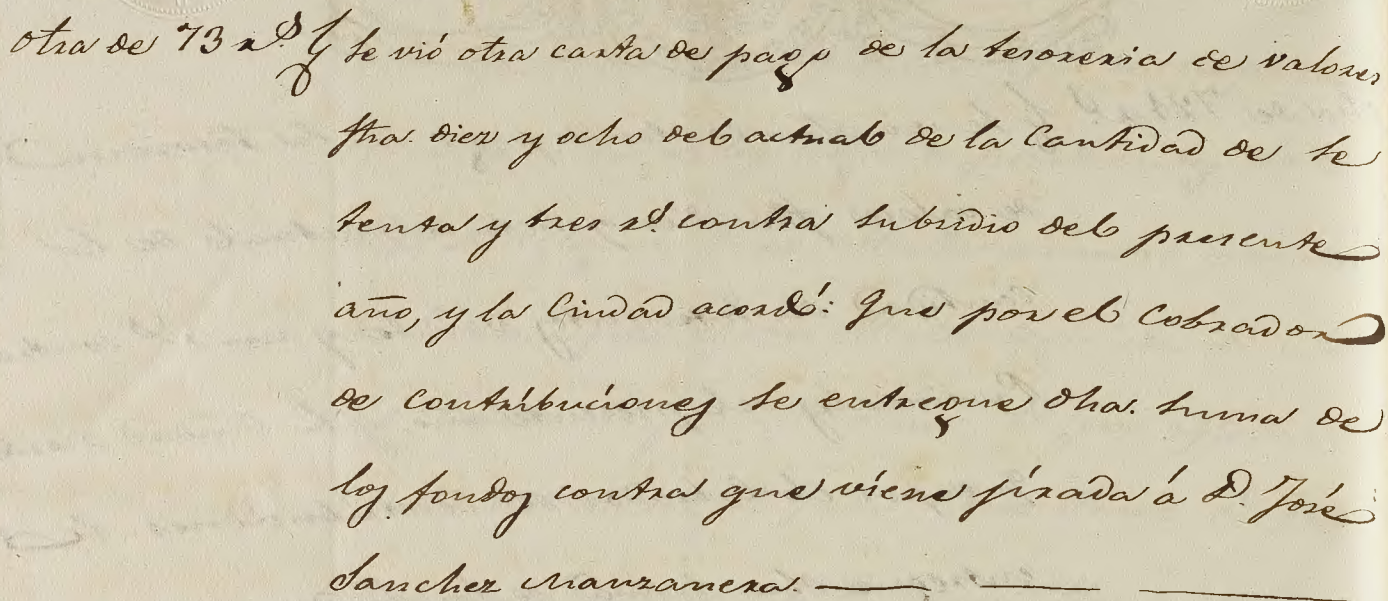 otra de 73 rs. Se vió otra carta de pago de la tesoreria de valores
fha. diez y ocho del actual de la Cantidad de se
tenta y tres rs. contra subsidio del presente
año, y la Ciudad acordó: Que por el Cobrador
de contribuciones se entregue dha. suma de
los fondos contra que viene jirada á D. José
Sanchez Manzanera.